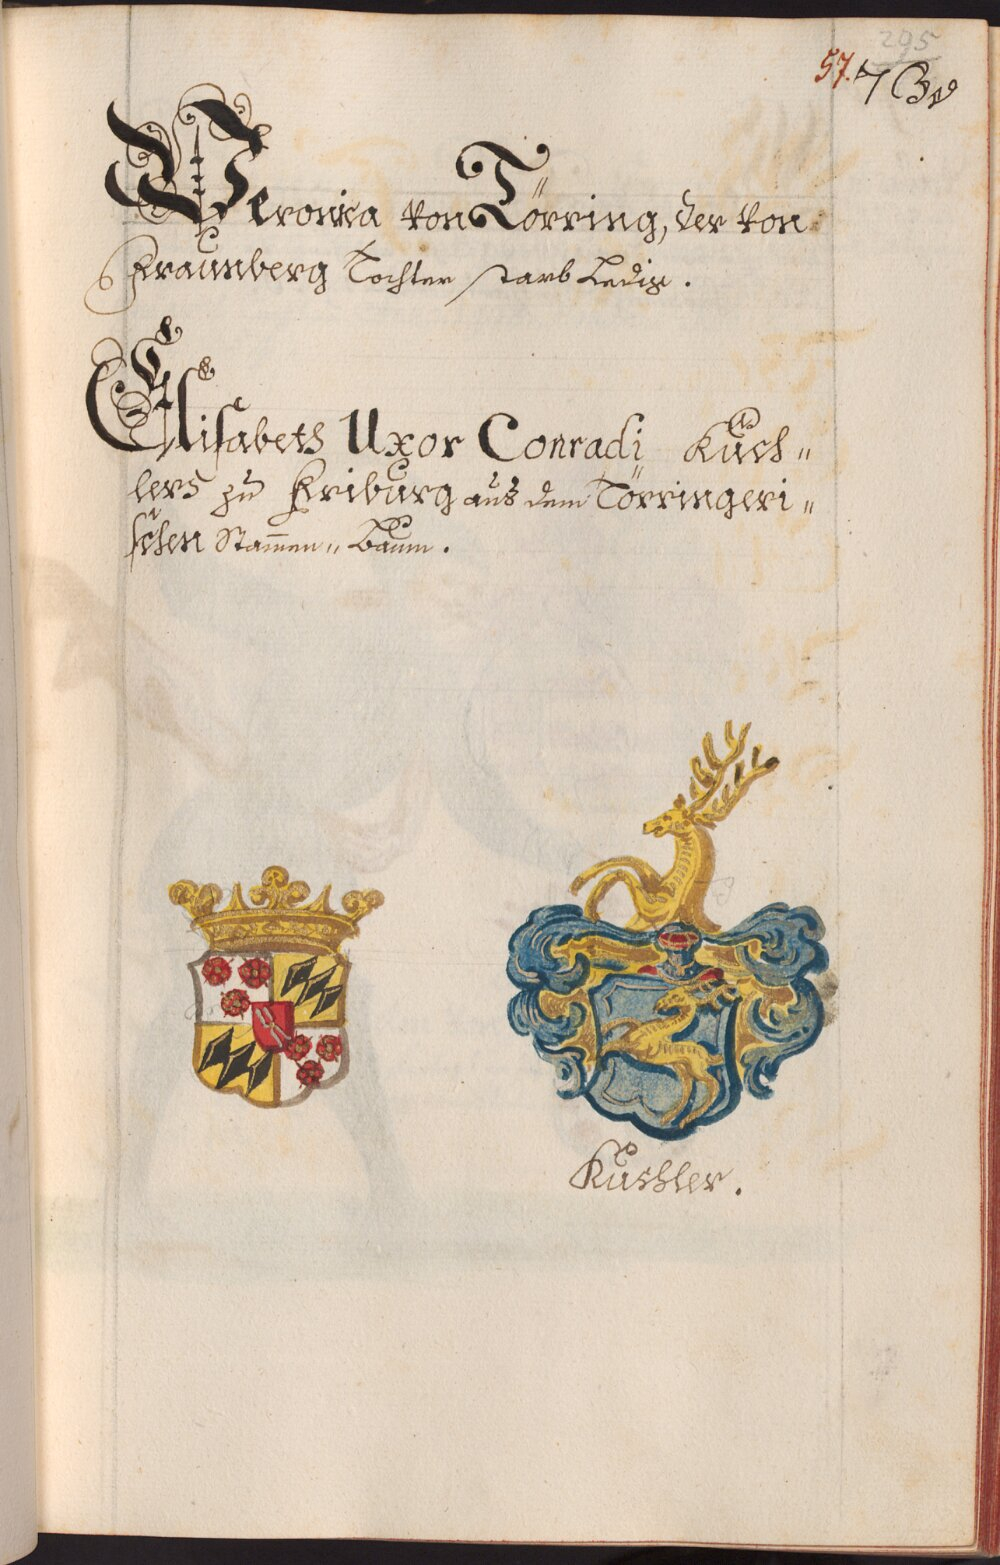 295
57.
Veronica von Törring, der von
Fraunberg Tochter starb Ledig.
Elisabeth Uxor Conradi Kuch=
lers zu Friburg aus dem Törringeri=
schen Stammen= Baum.
Kuchler.